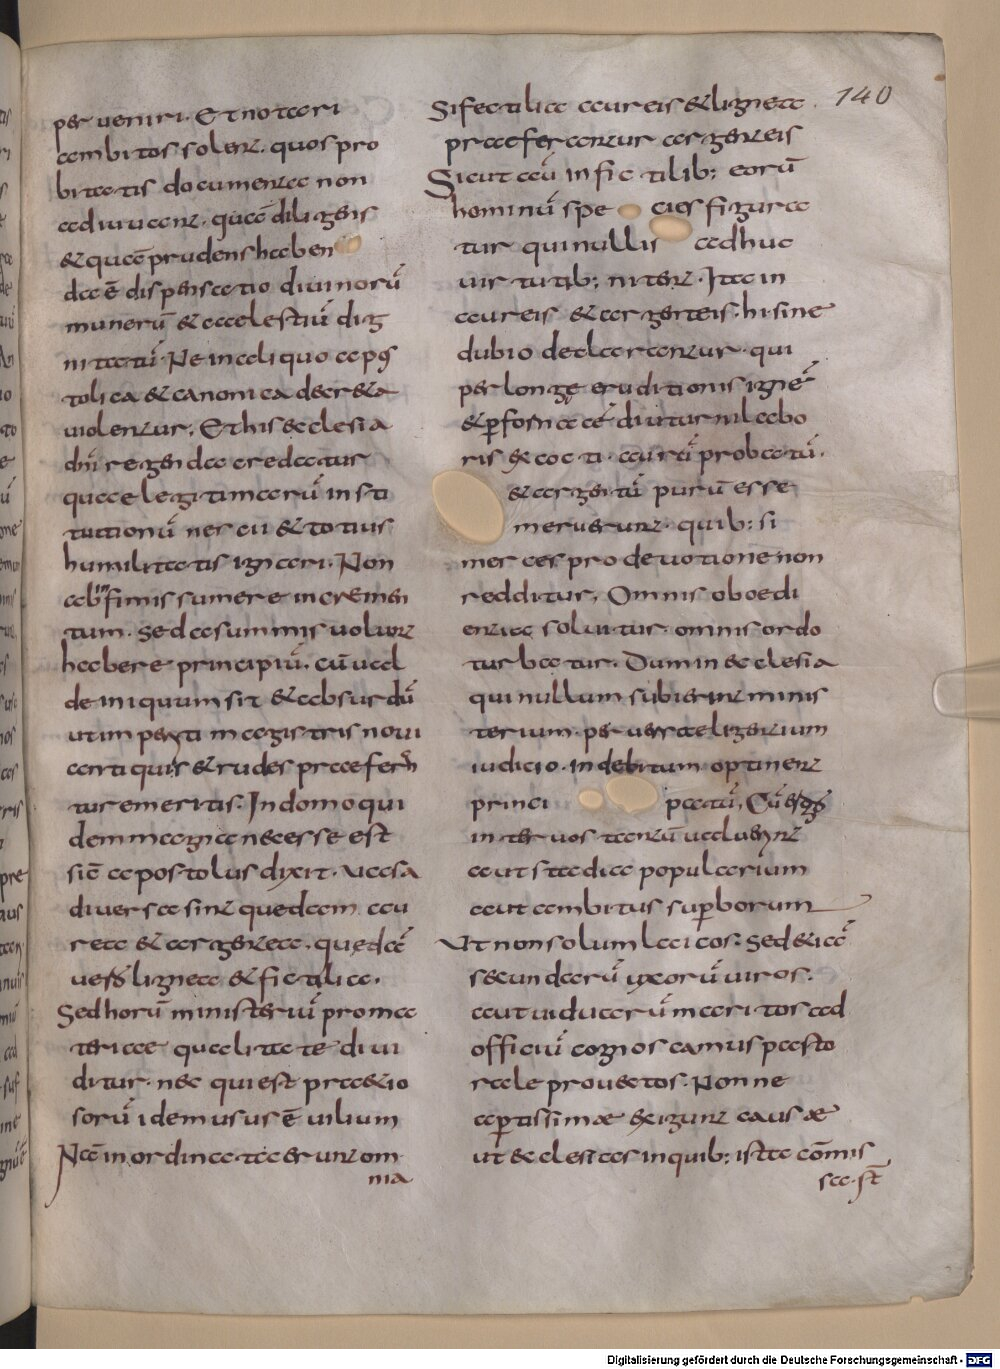 perueniri. Et notari
ambitos solent. quos pro
bitatis documenta non
adiuuant. quae diligens
& quae prudens haben
da ē dispensatio diuinorū
munerū & caelestiū dig
nitatū. Ne in aliquo apos
tolica & canonica decreta
uiolentur. Et his ecclesia
dni regenda credatur
quae legitimarū insti
tutionū nescii & totius
humilitatis ignari. Non
ab infimis sumere incremen
tum. sed a summis uolunt
habere principiū. cū ual
de iniquum sit & absurdū
ut imperiti magistris noui
antiquis & rudes praefern
tur emeritis. In domo qui
dem magna necesse est
sic apostolus dixit. uasa
diuersa sint quedam au
rea & argentea. quedā
uero lignea & fictilia.
Sed horū ministeriū pro ma
teriae qualitate diui
ditur. nec qui est praetio
sorū idem usus ē uilium
Nā inordinata erunt om
nia
Si fectilia aureis & lignea
praeferantur argenteis
Sicut aū in fictilib; eorū
hominū species figura
tur qui nullis adhuc
uirtutib; nitent. Ita in
aureis & argenteis. hi sine
dubio declarantur. qui
per longe eruditionis ignē
& p fornacē diuturni labo
ris excocti. aurū probatū.
& argentū purū esse
meruerunt. quib; si
merces pro deuotione non
redditur. Omnis oboedi
entia soluitur. omnis ordo
turbatur. Dum in ecclesia
qui nullum subierint minis
terium. per uersae legentium
iudicio. indebitum optinent
principatū, Cū ergo
inter uos tantū ualuerint
aut stadia popularium
aut ambitus superborum
Ut non solum laicos: sed etiā
secundarū uxorū uiros.
aut uiduarū maritos ad
officiū cognoscamus pasto
rale prouectos. Nonne
apertissimae exigunt causae
ut ecclesias in quib; ista cōmis
sa st
140
Digitalisierung gefördert durch die Deutsche Forschungsgemeinschaft - DFG